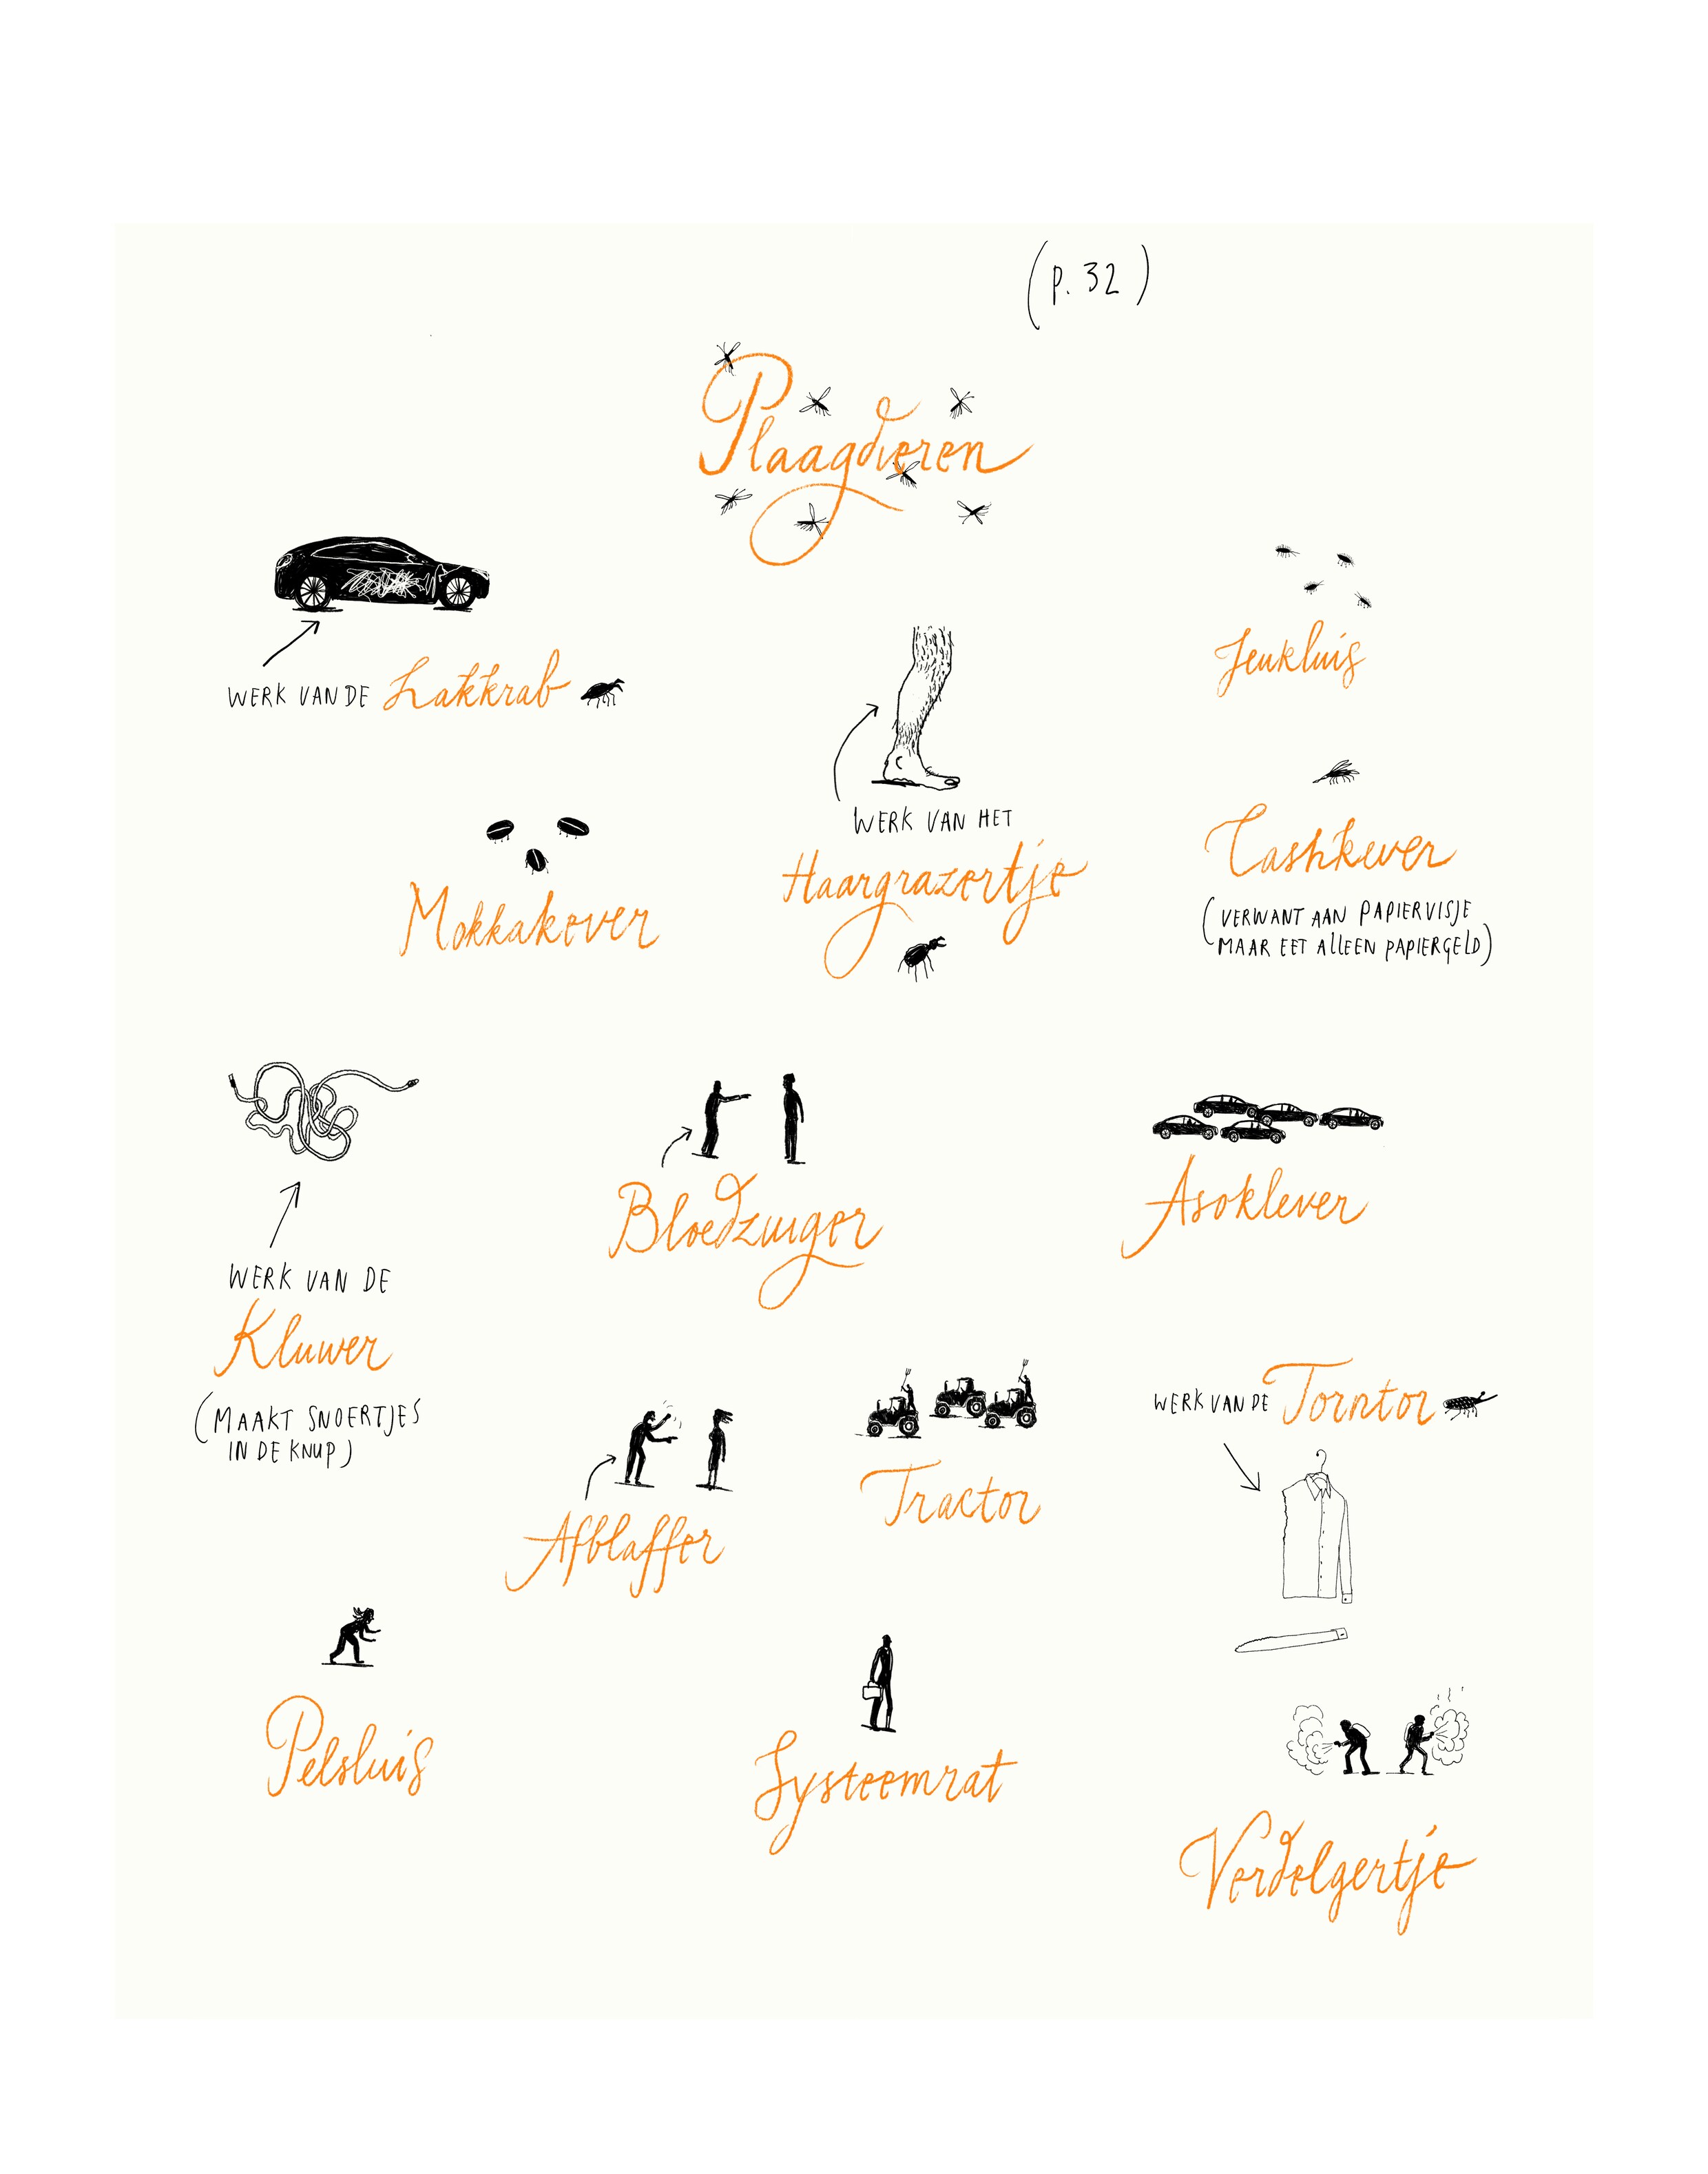 (P. 32)
Plaagdieren
WERK VAN DE Lakkrab
Jeukluis
Mokkakever
WERK VAN HET
Haargrazertje
Cashkever
(VERWANT AAN PAPIERVISJE
MAAR EET ALLEEN PAPIERGELD)
WERK VAN DE
Kluwer
(MAAKT SNOERTJES
IN DE KNUP)
Bloedzuiger
Asoklever
Afblaffer
Tractor
WERK VAN DE Torntor
Pelsluis
Systeemrat
Verdelgertje